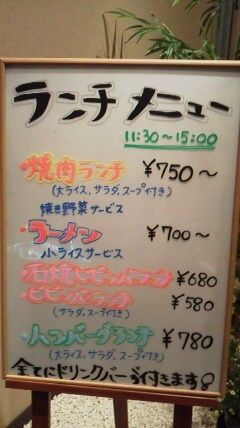 ランチメニュー
11:30～15:00
焼肉ランチ ¥750～
(大ライス、サラダ、スープ付き)
焼き野菜サービス
ラーメン ¥700～
小ライスサービス
石焼ビビンバランチ ¥680
ビビンバランチ ¥580
(サラダ、スープ付き)
ハンバーグランチ ¥780
(大ライス、サラダ、スープ付き)
全てにドリンクバーが付きます